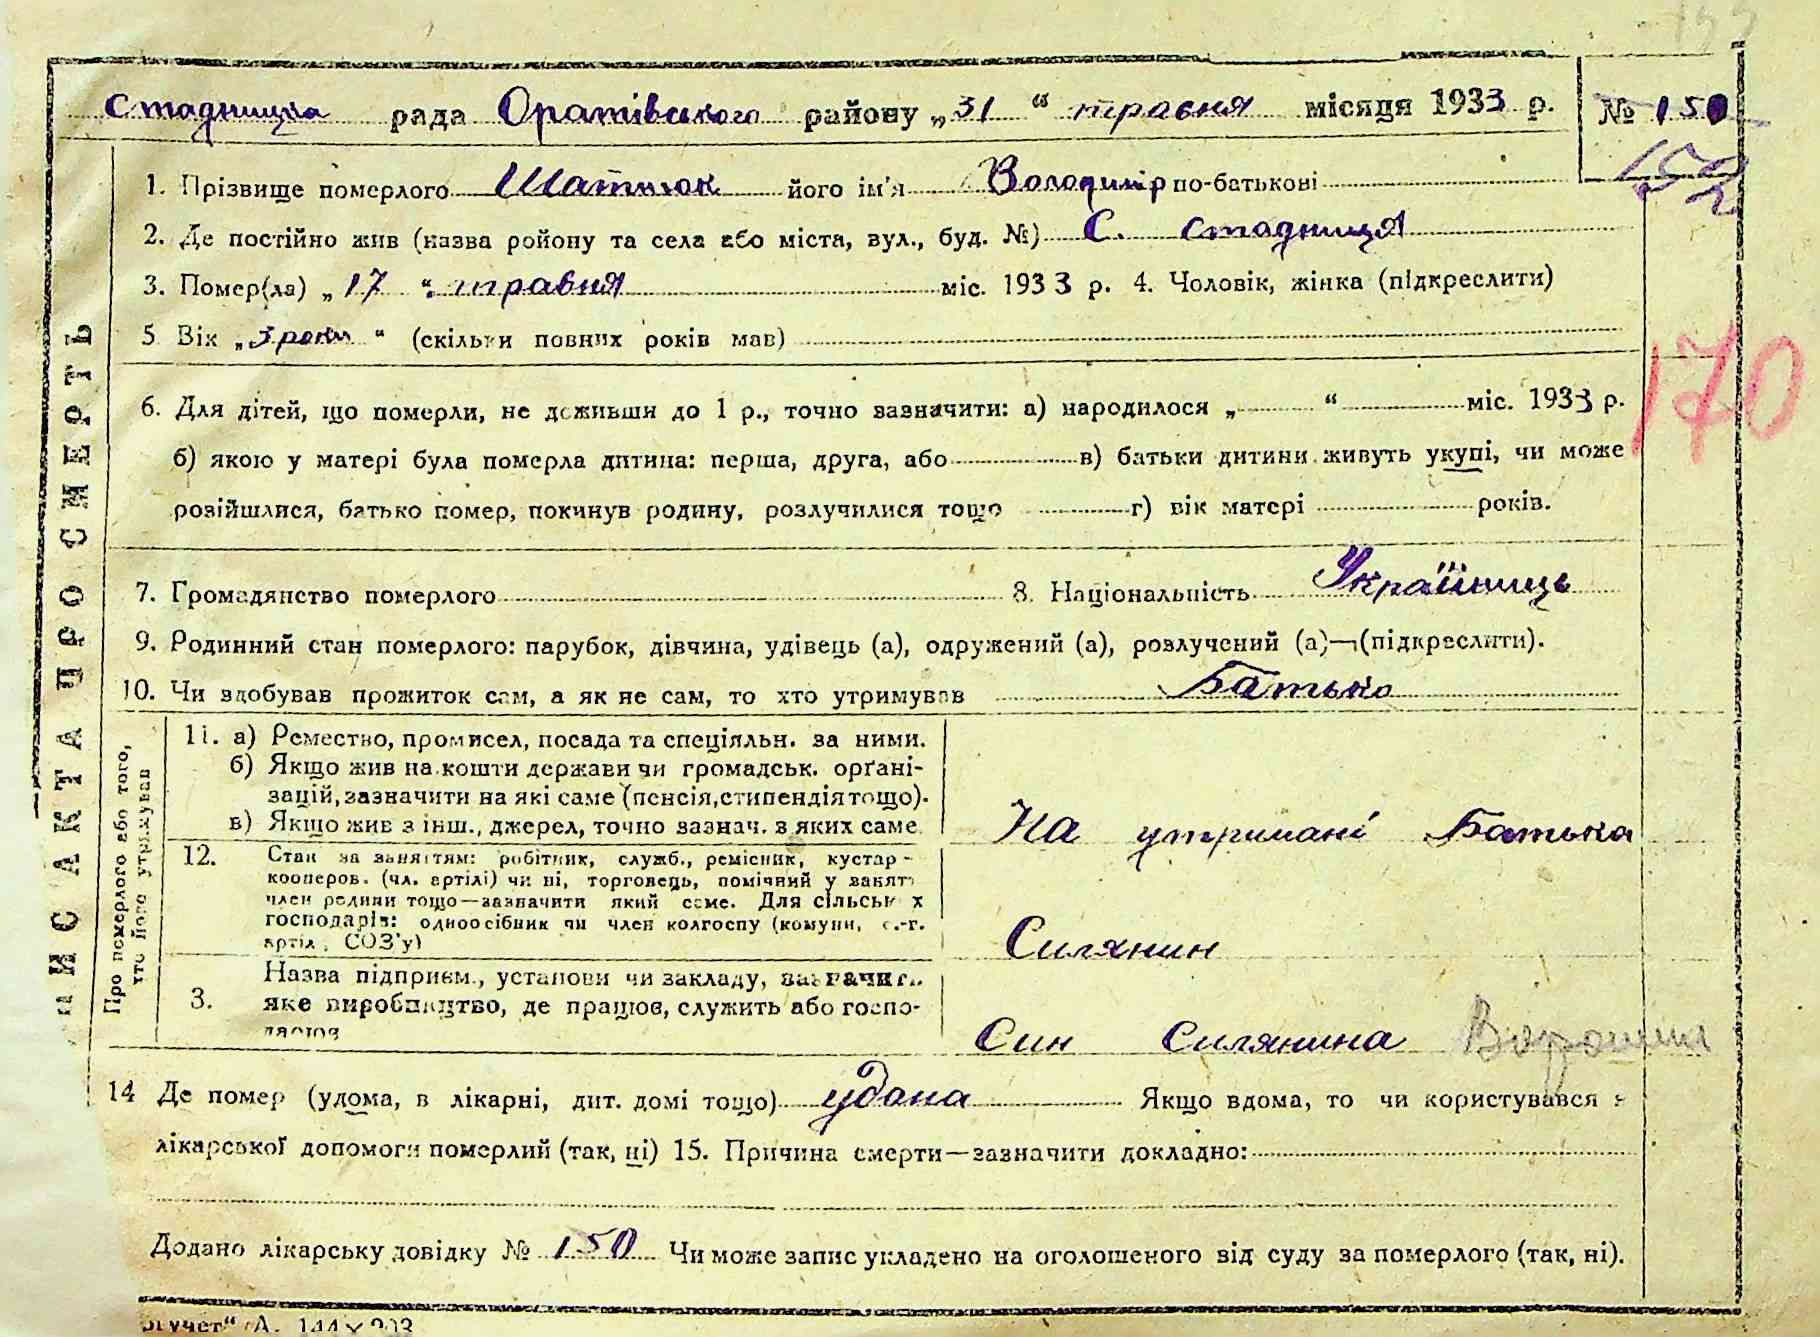 Стадницька рада Оратівського району „31“ травня місяця 1933 р. № 150
152
1. Прізвище померлого його ім'я Володимір по-батькові
2. Де постійно жив (назва ройону та села або міста, вул., буд. №) С. Стадниця
3. Помер(ла) „17“ травня міс. 1933 р. 4. Чоловік, жінка (підкреслити)
5 Вік „3 роки“ (скільки повних років мав)
170
6. Для дітей, що померли, не доживши до 1 р., точно зазначити: а) народилося „ “ міс. 1933 р.
б) якою у матері була померла дитина: перша, друга, або в) батьки дитини живуть укупі, чи може
розійшлися, батько помер, покинув родину, розлучилися тощо г) вік матері років.
7. Громадянство померлого 8. Національність Українець
9. Родинний стан померлого: парубок, дівчина, удівець (а), одружений (а), розлучений (а)—(підкреслити).
10. Чи здобував прожиток сам, а як не сам, то хто утримував Батько
ПИС АКТА ПРО СМЕРТЬ
Про померлого або того, хто його утримував
11. а) Ремество, промисел, посада та спеціяльн. за ними.
б) Якщо жив на кошти держави чи громадськ. орґані-
зацій, зазначити на які саме (пенсія, стипендія тощо).
в) Якщо жив з інш., джерел, точно зазнач. з яких саме На утримані Батька
12. Стан за заняттям: робітник, служб., ремісник, кустар-
кооперов. (чл. артілі) чи ні, торговець, помічний у занятт
член родини тощо—зазначити який саме. Для сільськ х
господарів: одноосібник чи член колгоспу (комуни, с.-г.
артіл, СОЗ'у) Силянин
Назва підприєм., установи чи закладу, зазначити
3. яке виробництво, де працюв, служить або госпо-
дарюв Син Силянина
14 Де помер (удома, в лікарні, дит. домі тощо) удома Якщо вдома, то чи користувався з
лікарської допомоги померлий (так, ні) 15. Причина смерти—зазначити докладно:
Додано лікарську довідку № 150 Чи може запис укладено на оголошеного від суду за померлого (так, ні).
ргучет" А. 144×203